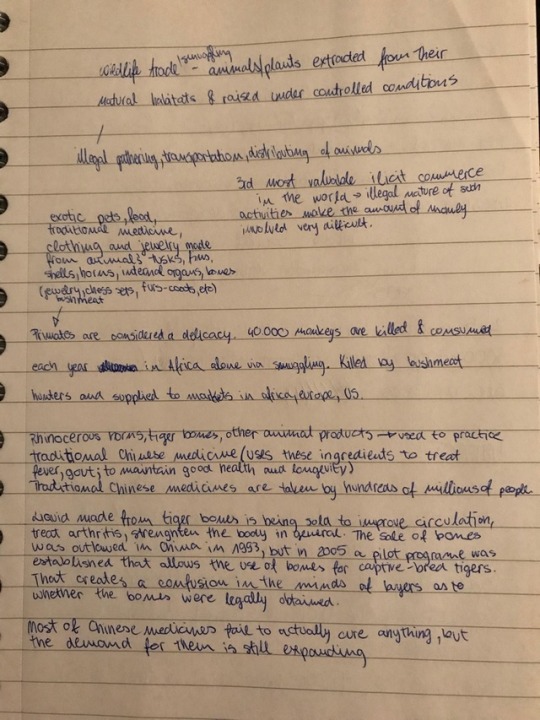 wildlife trade /smuggling - animals/plants extraded from their
natural habitats & raised under controlled conditions
illegal gathering, transportation, distributing of animals
3rd most valuable ilicit commerce
in the world → illegal nature of such
activities make the amount of money
involved very difficult.
exotic pets, food,
traditional medicine,
clothing and jewelry made
from animals tusks, fins,
shells, horns, internal organs, bones
(jewelry, chess sets, furs-coats, etc)
bushmeat
Primates are considered a delicacy. 40.000 monkeys are killed & consumed
each year in Africa alone via smuggling. Killed by bushmeat
hunters and supplied to markets in africa, europe, US.
Rhinocerous horns, tiger bones, other animal products → used to practice
traditional Chinese medicine (uses these ingredients to treat
fever, gout; to maintain good health and longevity)
Traditional Chinese medicines are taken by hundreds of millions of people
Liquid made from tiger bones is being sold to improve circulation,
treat arthritis, strenghten the body in general. The sale of bones
was outlawed in China in 1993, but in 2005 a pilot programe was
established that allows the use of bones for captive-bred tigers.
That creates a confusion in the minds of buyers as to
whether the bones were legally obtained.
Most of Chinese medicines fail to actually cure anything, but
the demand for them is still expanding